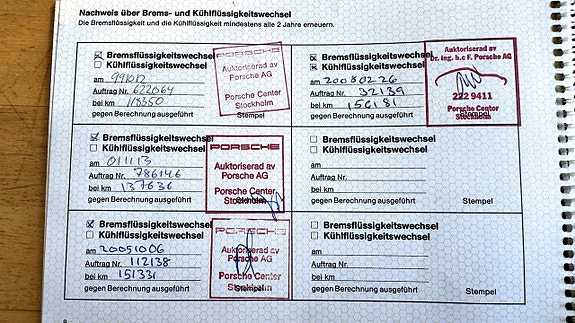 Nachweis über Brems- und Kühlflüssigkeitswechsel
Die Bremsflüssigkeit und die Kühlflüssigkeit mindestens alle 2 Jahre erneuern.
Bremsflüssigkeitswechsel
Kühlflüssigkeitswechsel
am 991012
Auftrag Nr. 622064
bei km 118350
gegen Berechnung ausgeführt
Stempel
PORSCHE
Auktoriserad av
Porsche AG
Porsche Center
Stockholm
Bremsflüssigkeitswechsel
Kühlflüssigkeitswechsel
am 20080226
Auftrag Nr. 32139
bei km 156181
gegen Berechnung ausgeführt
Stempel
Auktoriserad av
Dr. Ing. h.c F. Porsche AG
222 9411
Porsche Center
Stockholm
Bremsflüssigkeitswechsel
Kühlflüssigkeitswechsel
am 011113
Auftrag Nr. 786146
bei km 137636
gegen Berechnung ausgeführt
Stempel
PORSCHE
Auktoriserad av
Porsche AG
Porsche Center
Stockholm
Bremsflüssigkeitswechsel
Kühlflüssigkeitswechsel
am
Auftrag Nr.
bei km
gegen Berechnung ausgeführt
Stempel
Bremsflüssigkeitswechsel
Kühlflüssigkeitswechsel
am 20051006
Auftrag Nr. 112138
bei km 151331
gegen Berechnung ausgeführt
Stempel
PORSCHE
Auktoriserad av
Porsche AG
Porsche Center
Stockholm
Bremsflüssigkeitswechsel
Kühlflüssigkeitswechsel
am
Auftrag Nr.
bei km
gegen Berechnung ausgeführt
Stempel